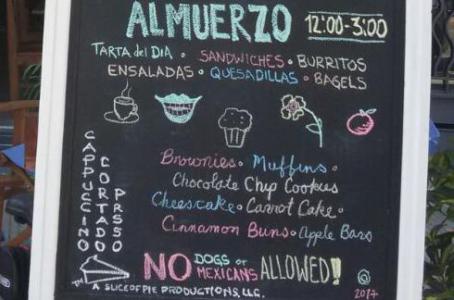 ALMUERZO 12:00-3:00
TARTA del DIA • SANDWICHES • BURRITOS
ENSALADAS • QUESADILLAS • BAGELS
CAPPUCCINO
CORTADO
PRSSO
Brownies • Muffins •
Chocolate Chip Cookies
Cheesecake • Carrot Cake •
Cinnamon Buns • Apple Bars
NO DOGS or MEXICANS ALLOWED!
A SLICE OF PIE PRODUCTIONS, LLC.
© 2017
TM